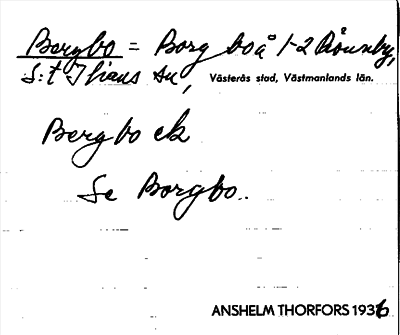 Bergbo = Borgbo å 1-2 Råunby,
S:t Ilians sn, Västerås stad, Västmanlands län.
Bergbo ek
Se Borgbo.
ANSHELM THORFORS 1936